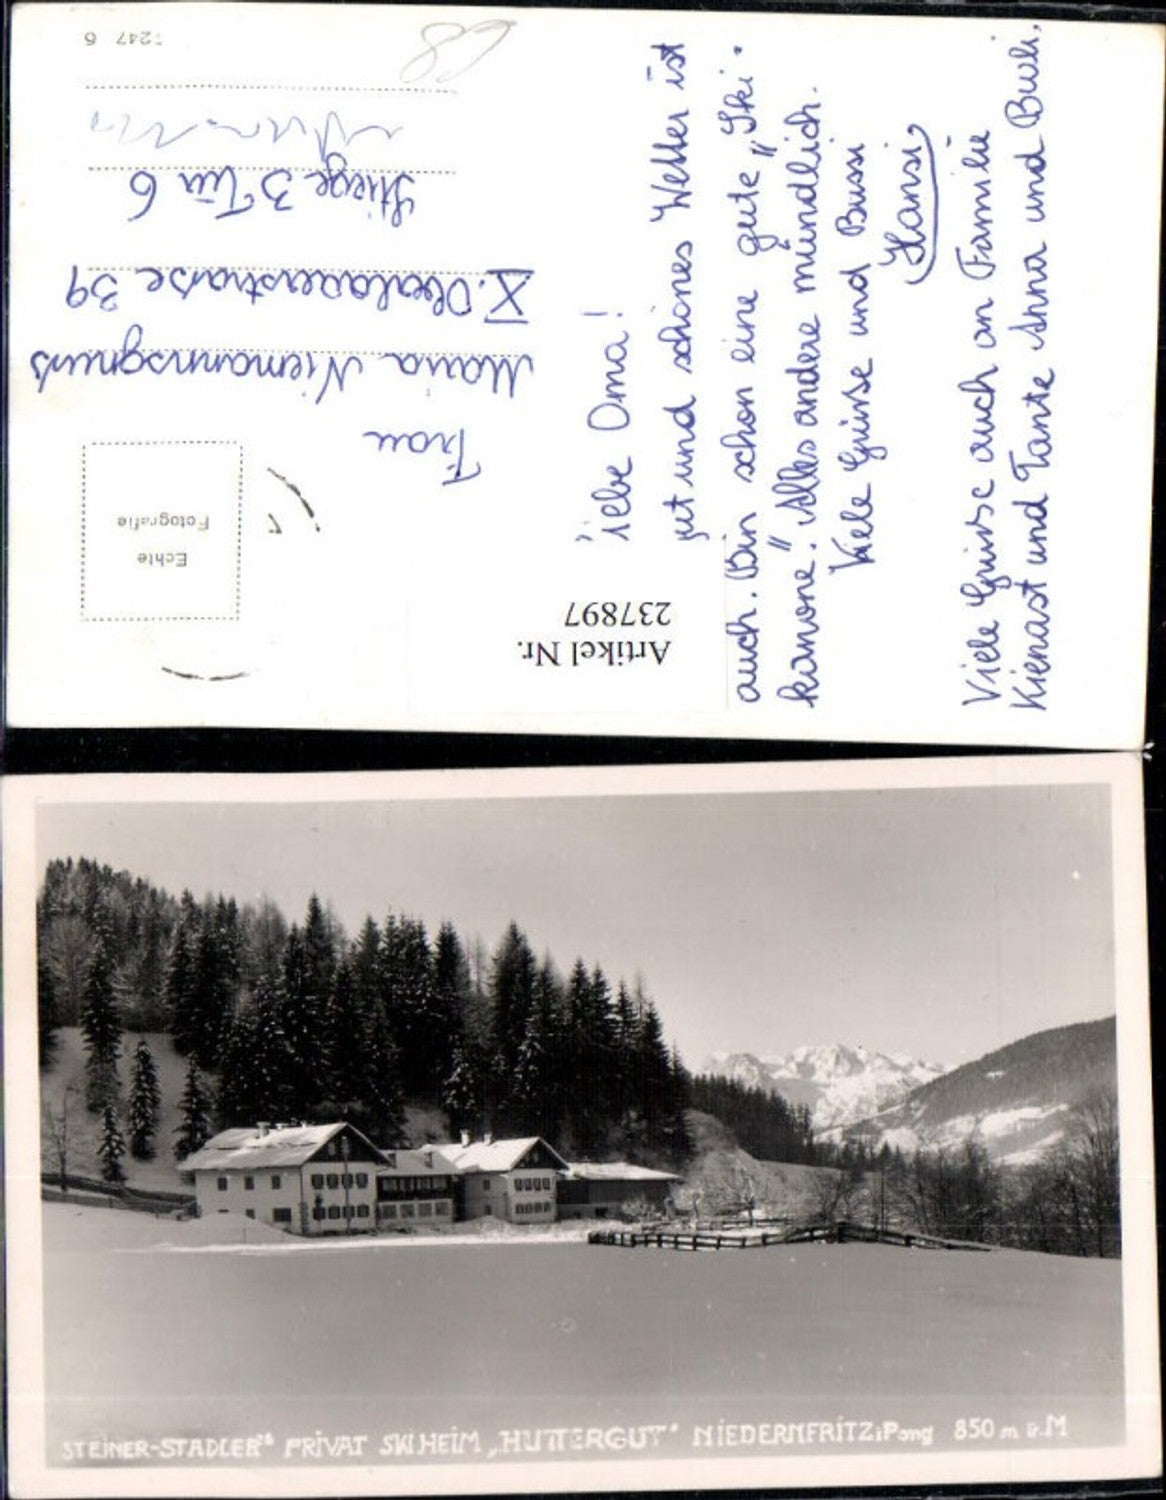 Liebe Oma!
gut und schönes Wetter ist
auch. Bin schon eine gute „Ski-
kanone". Alles andere mündlich.
Viele Grüsse und Bussi
Hansi
Viele Grüsse auch an Familie
Kienast und Tante Anna und Burli.
Frau
Maria Niemannsgnuss
X. Oberlaaerstraße 39
Stiege 3 Tür 6
68
247 6
Echte
Fotografie
Artikel Nr.
237897
STEINER-STADLER'S PRIVAT SKIHEIM „HUTTERGUT" NIEDERNFRITZ i Pong 850 m ü. M